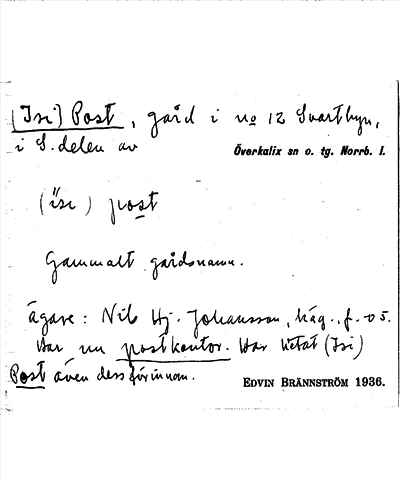 (Isi) Post, gård i no 12 Svartbyn,
i S. delen av
Överkalix sn o. tg. Norrb. l.
(ïsi) post
Gammalt gårdsnamn.
ägare: Nils Hj. Johansson, häg., f. -05.
Har nu postkontor. Har hetat (Isi)
Post även dess förinnan.
EDVIN BRÄNNSTRÖM 1936.